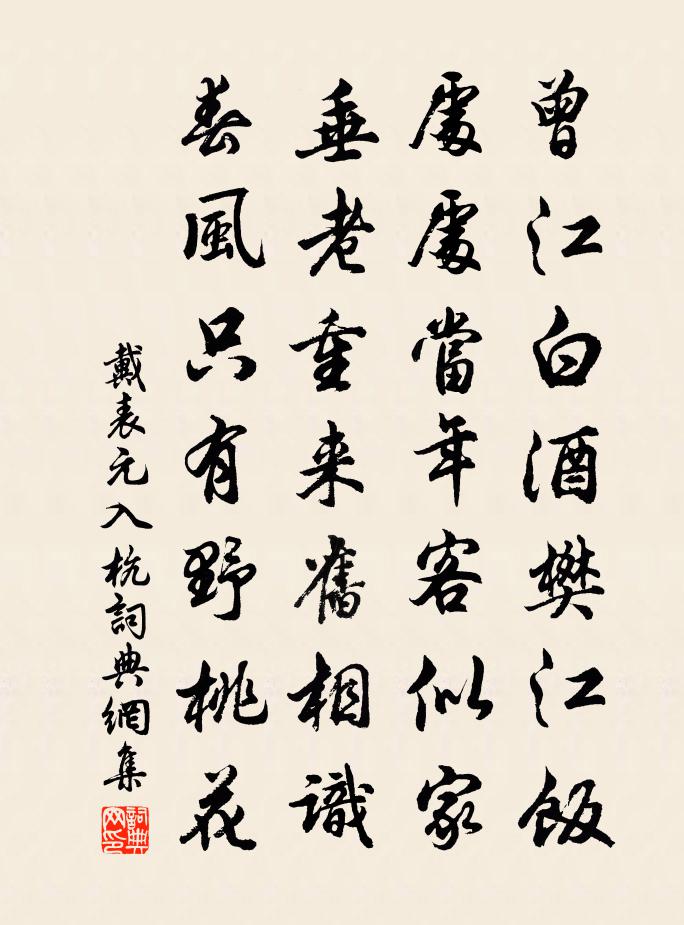 曾江白酒樊江飯
處處當年客似家
垂老重来舊相識
春風只有野桃花
戴表元入杭詞典網集
詞典网印